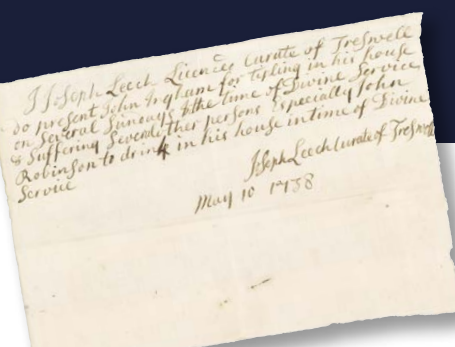 I Joseph Leech Licenced Curate of Treswell
do present John Ingham for Tipling in his house
on Several Sundays & the time of Divine Service
& Suffering Several other persons Especially John
Robinson to drink in his house in time of Divine
Service
Joseph Leech Curate of Treswell
May 10 1738